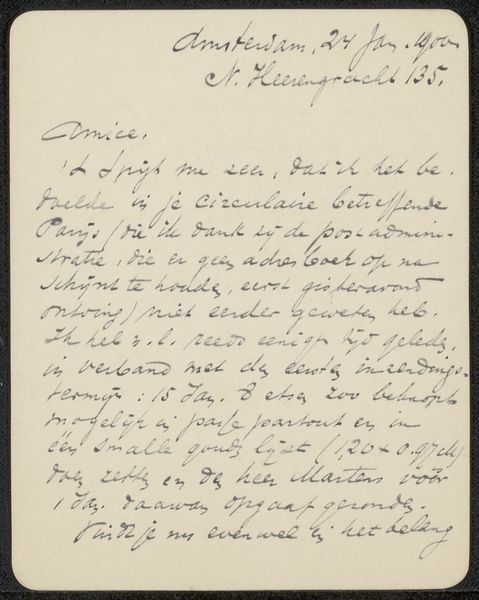 Amsterdam, 24 Jan. 1900
N. Heerengracht 135.
Amice.
't Spijt me zeer, dat ik het be-
doelde in je circulaire betreffende
Parijs (die ik dank zij de postadmini-
stratie, die er geen adresboek op na
schijnt te houden, eerst gisteravond
ontving) niet eerder geweten heb.
Ik heb n.l. reeds eenigen tijd geleden,
in verband met den eersten inzendings-
termijn: 15 Jan. 8 etsen zoo beknopt
mogelijk in passe partout en in
één smalle gouden lijst (120 x 0.97 cM)
doen zetten en den heer Martens vóór
1 Jan. daarvan opgaaf gezonden.
Vindt je nu evenwel in het belang